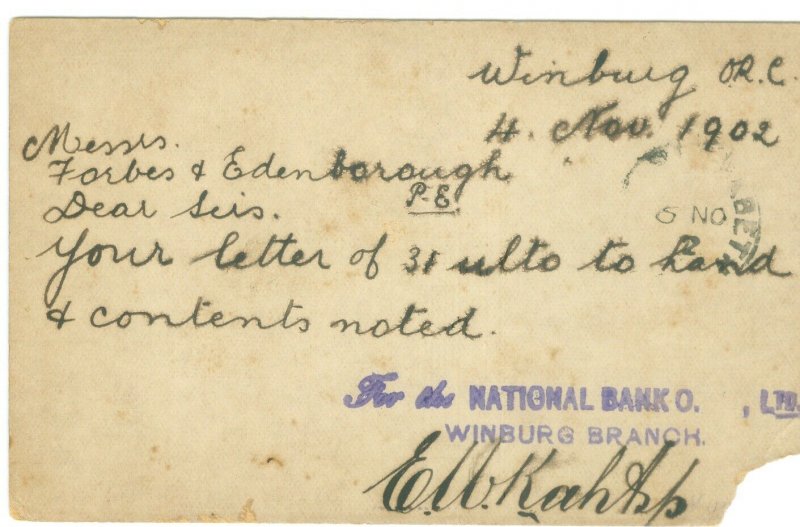 Winburg O.R.C.
4. Nov. 1902
Messrs.
Forbes & Edenborough
P.E.
Dear Sirs.
5 NO
BET
Your letter of 31 ulto to hand
& contents noted.
For the NATIONAL BANK O. , LTD.
WINBURG BRANCH.